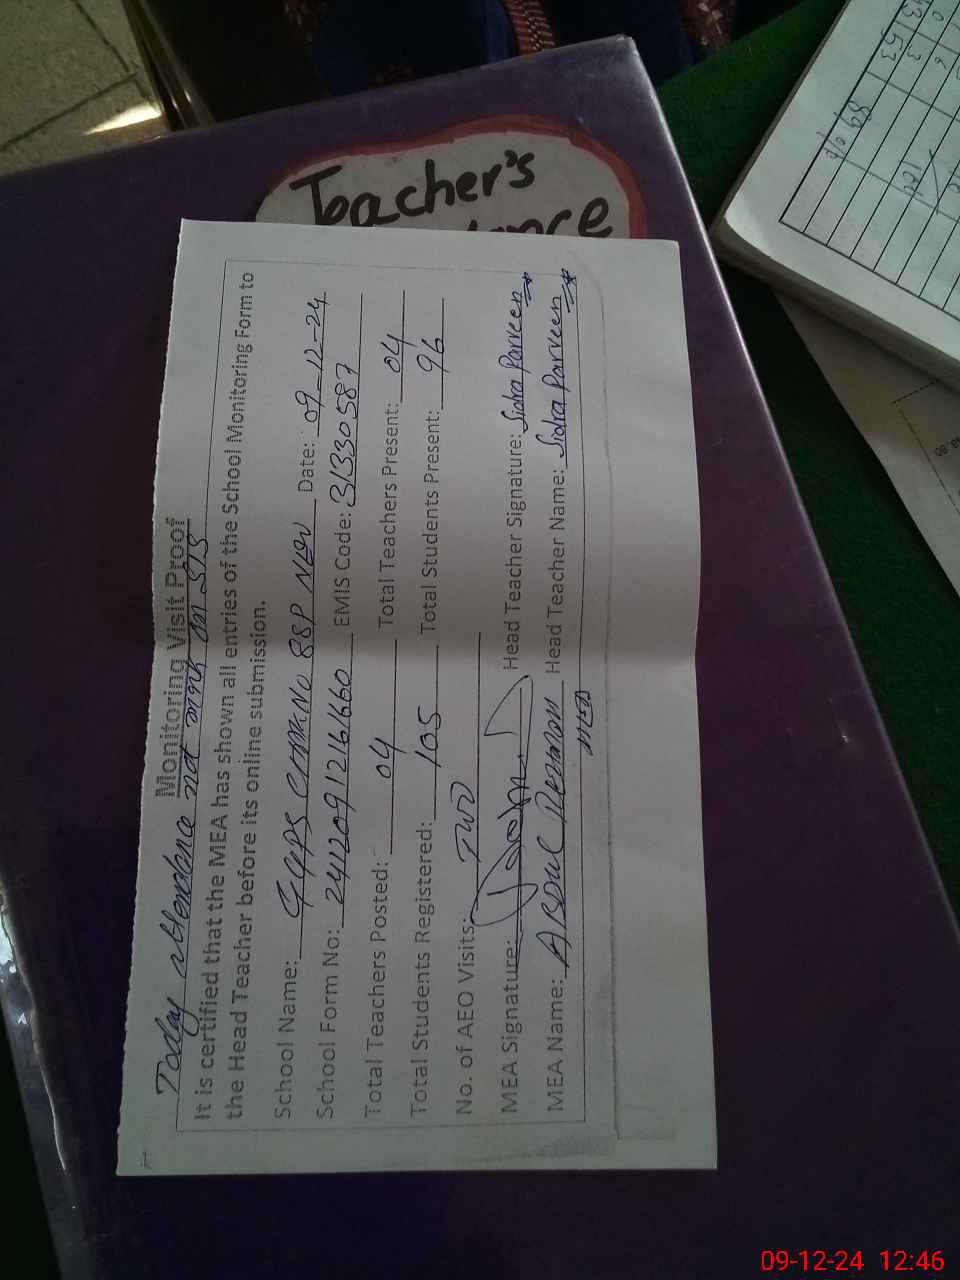 Teacher's
Today attendance not mark on SIS
Monitoring Visit Proof
It is certified that the MEA has shown all entries of the School Monitoring Form to
the Head Teacher before its online submission.
School Name: GGPS CHAK NO 88P New Date: 09-12-24
School Form No: 24120912161660 EMIS Code: 31330587
Total Teachers Posted: 04 Total Teachers Present: 04
Total Students Registered: 105 Total Students Present: 96
No. of AEO Visits: TWO
MEA Signature: Head Teacher Signature: Sidra Parveen
MEA Name: ABDUL REHMAN Head Teacher Name: Sidra Parveen
MEA
09-12-24 12:46